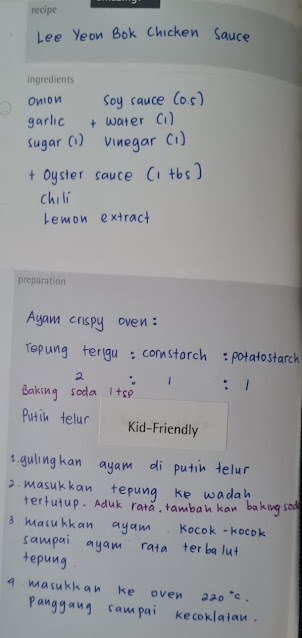 recipe
Lee Yeon Bok Chicken Sauce
ingredients
onion Soy sauce (0.5)
garlic + water (1)
sugar (1) Vinegar (1)
+ Oyster sauce (1 tbs)
Chili
Lemon extract
preparation
Ayam crispy oven :
Tepung terigu : cornstarch : potatostarch
2 : 1 : 1
Baking soda 1 tsp
Putih telur
Kid-Friendly
1. gulingkan ayam di putih telur
2. masukkan tepung ke wadah
tertutup. Aduk rata. tambahkan baking soda
3 masukkan ayam. Kocok-kocok
sampai ayam rata terbalut
tepung
4. masukkan ke oven 220°c.
Panggang sampai kecoklatan.